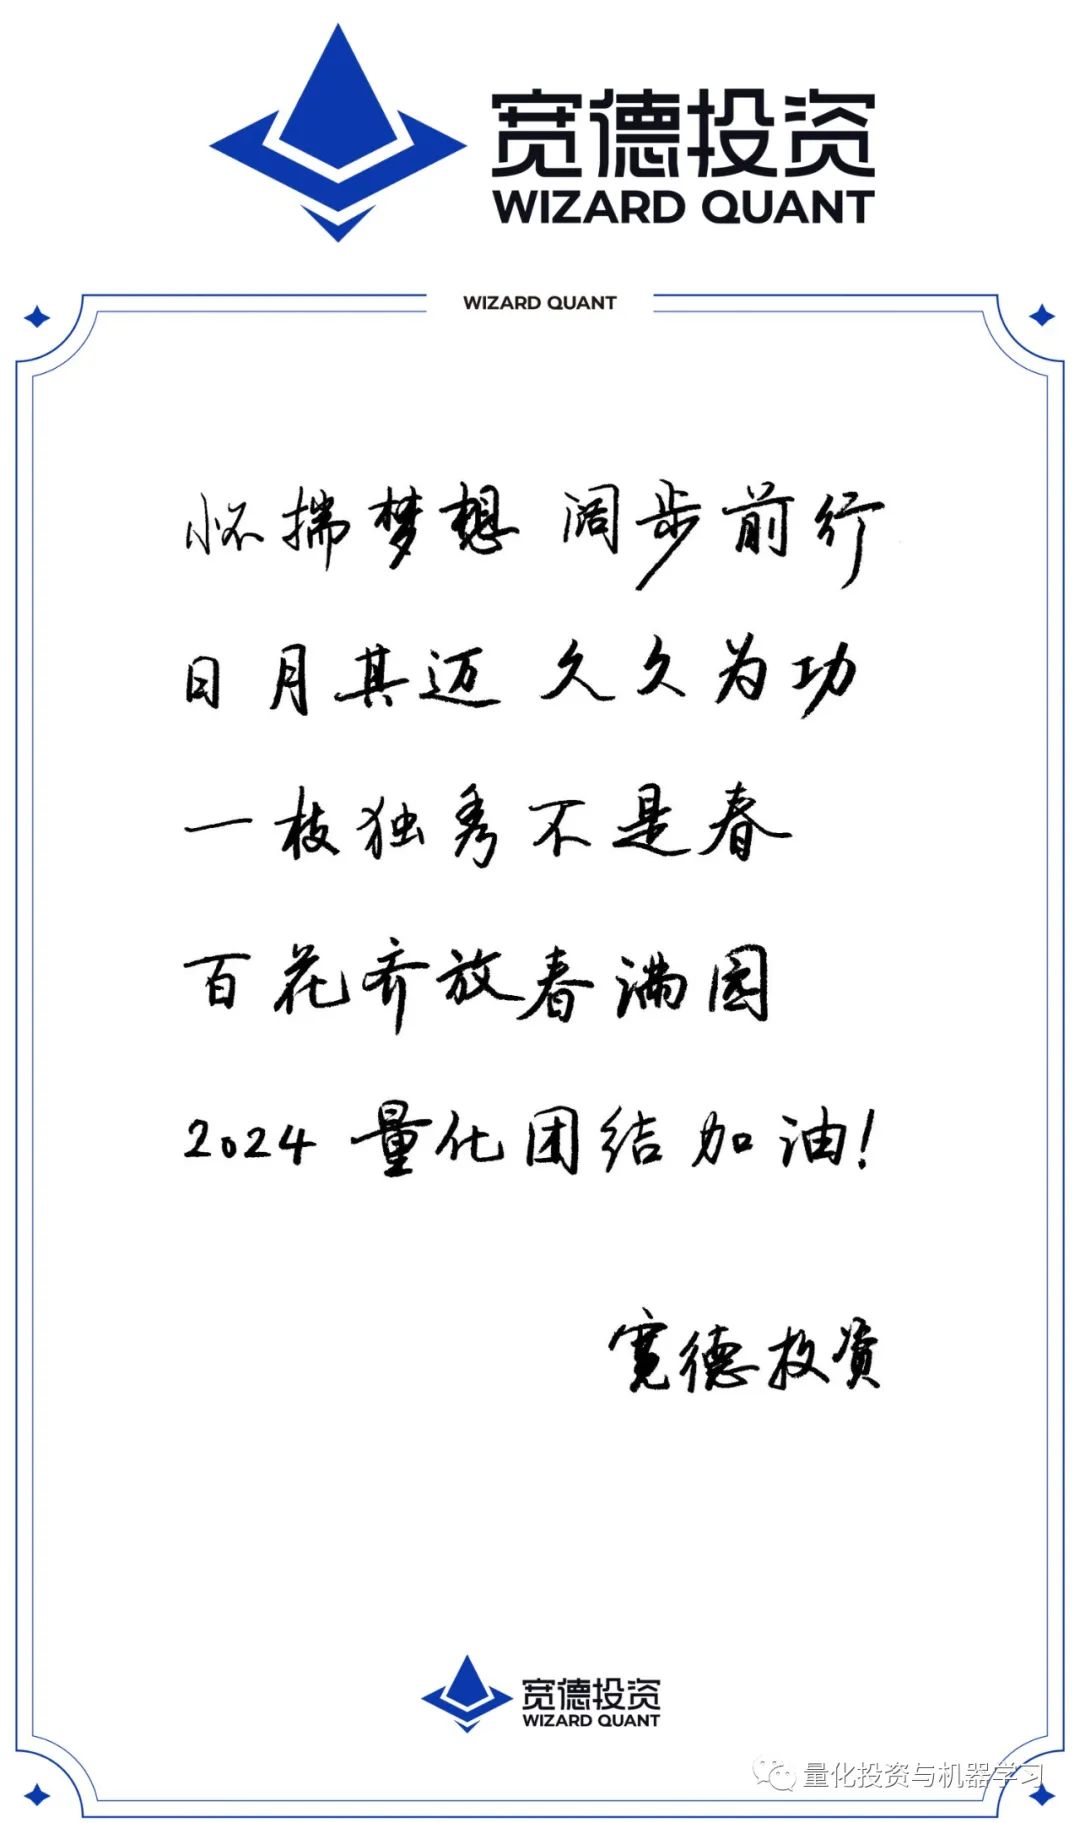 宽德投资
WIZARD QUANT
WIZARD QUANT
怀揣梦想 阔步前行
日月其迈 久久为功
一枝独秀不是春
百花齐放春满园
2024 量化团结加油!
宽德投资
宽德投资
WIZARD QUANT
量化投资与机器学习